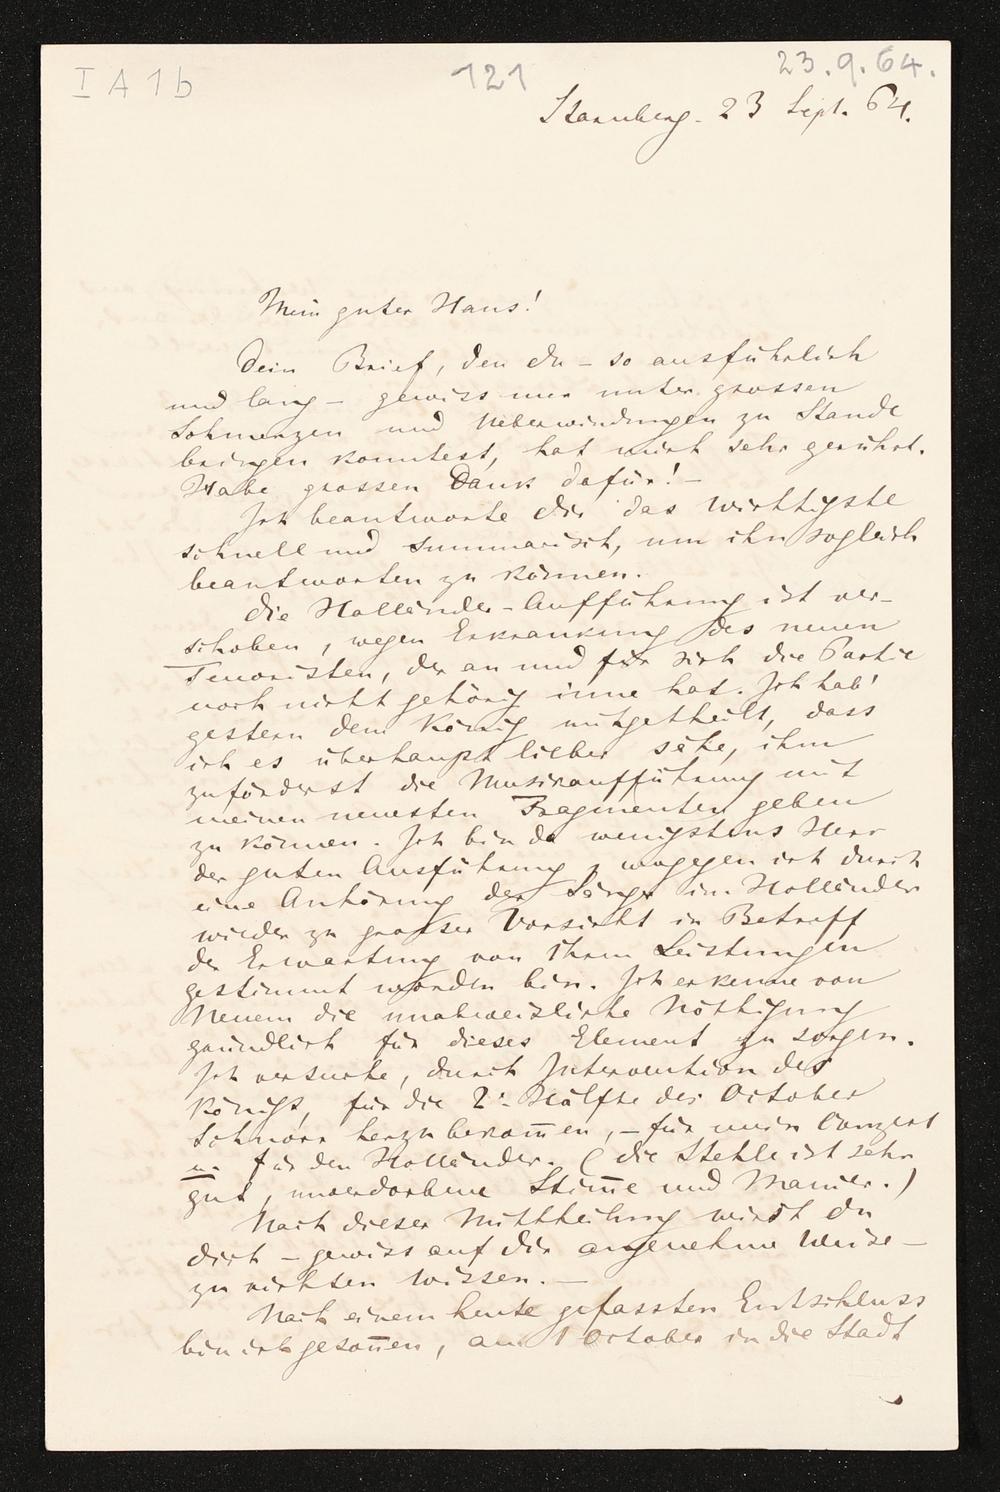 I A 1b 121 23.9.64.
Starnberg. 23 Sept. 64.
Mein guter Hans!
Dein Brief, den du – so ausführlich
und lang – gewiss nur unter grossen
Schmerzen und Ueberwindungen zu Stande
bringen konntest, hat mich sehr gerührt.
Habe grossen Dank dafür! –
Ich beantworte dir das Wichtigste
schnell und summarisch, um ihn sogleich
beantworten zu können.
Die Holländer-Aufführung ist ver-
schoben, wegen Erkrankung des neuen
Tenoristen, der an und für sich die Partie
noch nicht gehörig inne hat. Ich hab'
gestern dem König mitgetheilt, dass
ich es überhaupt lieber sähe, ihm
zuförderst die Musikaufführung mit
meinen neuesten Fragmenten geben
zu können. Ich bin da wenigstens Herr
der guten Ausführung, wogegen ich durch
eine Anhörung der Sänger im Holländer
wieder zu grosser Vorsicht in Betreff
der Erwartung von ihren Leistungen
gestimmt worden bin. Ich erkenne von
Neuem die unabweisliche Nöthigung
gründlich für dieses Element zu sorgen.
Ich versuche, durch Intervention des
Königs, für die 2t. Hälfte des October
Schnorr herzubekom̅en, – für mein Conzert
u. für den Holländer. (die Stehle ist sehr
gut, unverdorbene Stim̅e und Manier.)
Nach dieser Mittheilung wirst du
dich – gewiss auf dir angenehme Weise –
zu richten wissen. –
Nach einem heute gefassten Entschluss
bin ich geson̅en, am 1 October in die Stadt